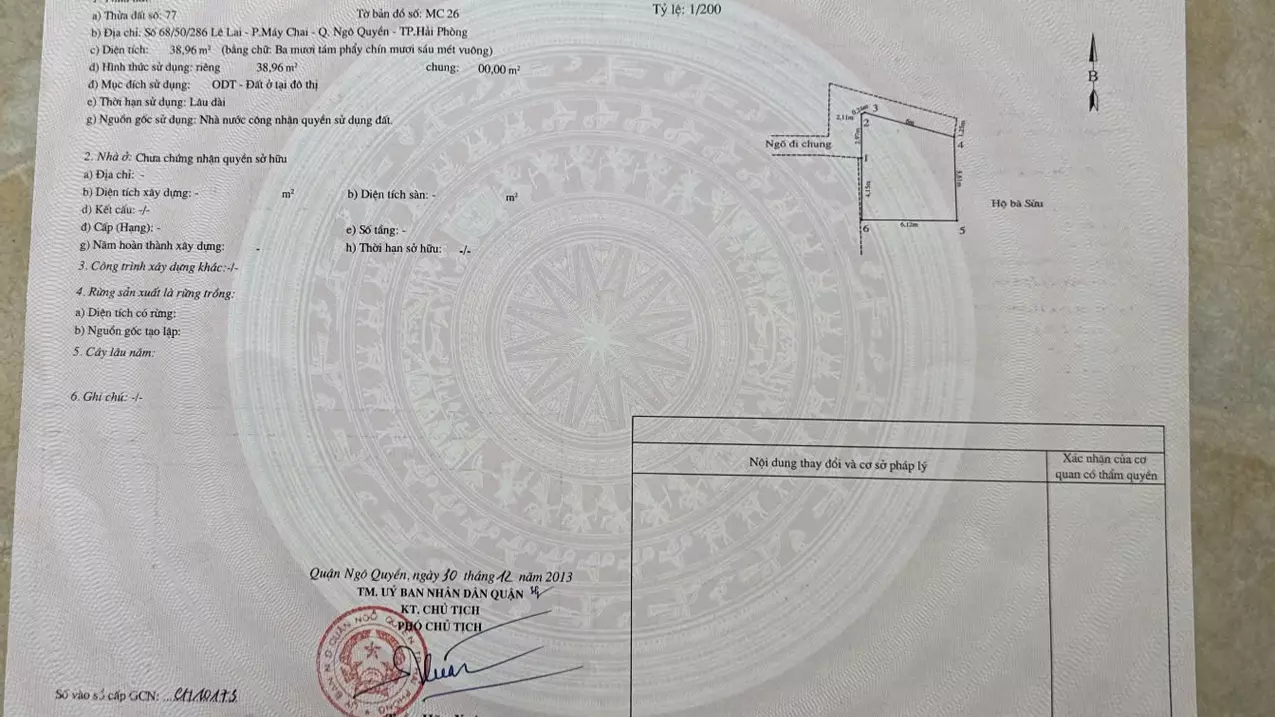 a) Thửa đất số: 77 Tờ bản đồ số: MC 26 Tỷ lệ: 1/200
b) Địa chỉ: Số 68/50/286 Lê Lai - P.Máy Chai - Q. Ngô Quyền - TP.Hải Phòng
c) Diện tích: 38,96 m² (bằng chữ: Ba mươi tám phẩy chín mươi sáu mét vuông)
d) Hình thức sử dụng: riêng 38,96 m² chung: 00,00 m²
đ) Mục đích sử dụng: ODT - Đất ở tại đô thị
e) Thời hạn sử dụng: Lâu dài
g) Nguồn gốc sử dụng: Nhà nước công nhận quyền sử dụng đất.
2. Nhà ở: Chưa chứng nhận quyền sở hữu
a) Địa chỉ: -
b) Diện tích xây dựng: - m² b) Diện tích sàn: - m²
d) Kết cấu: -/-
đ) Cấp (Hạng): - e) Số tầng: -
g) Năm hoàn thành xây dựng: - h) Thời hạn sở hữu: -/-
3. Công trình xây dựng khác:-/-
4. Rừng sản xuất là rừng trồng:
a) Diện tích có rừng:
b) Nguồn gốc tạo lập:
5. Cây lâu năm:
6. Ghi chú: -/-
B
2,11m
3
2
6m
1,25m
4
Ngõ đi chung
1
4,15m
Hộ bà Sửu
6
6,12m
5
Nội dung thay đổi và cơ sở pháp lý
Xác nhận của cơ
quan có thẩm quyền
Quận Ngô Quyền, ngày 30 tháng 12 năm 2013
TM. UỶ BAN NHÂN DÂN QUẬN
KT. CHỦ TỊCH
PHÓ CHỦ TỊCH
Số vào sổ cấp GCN: